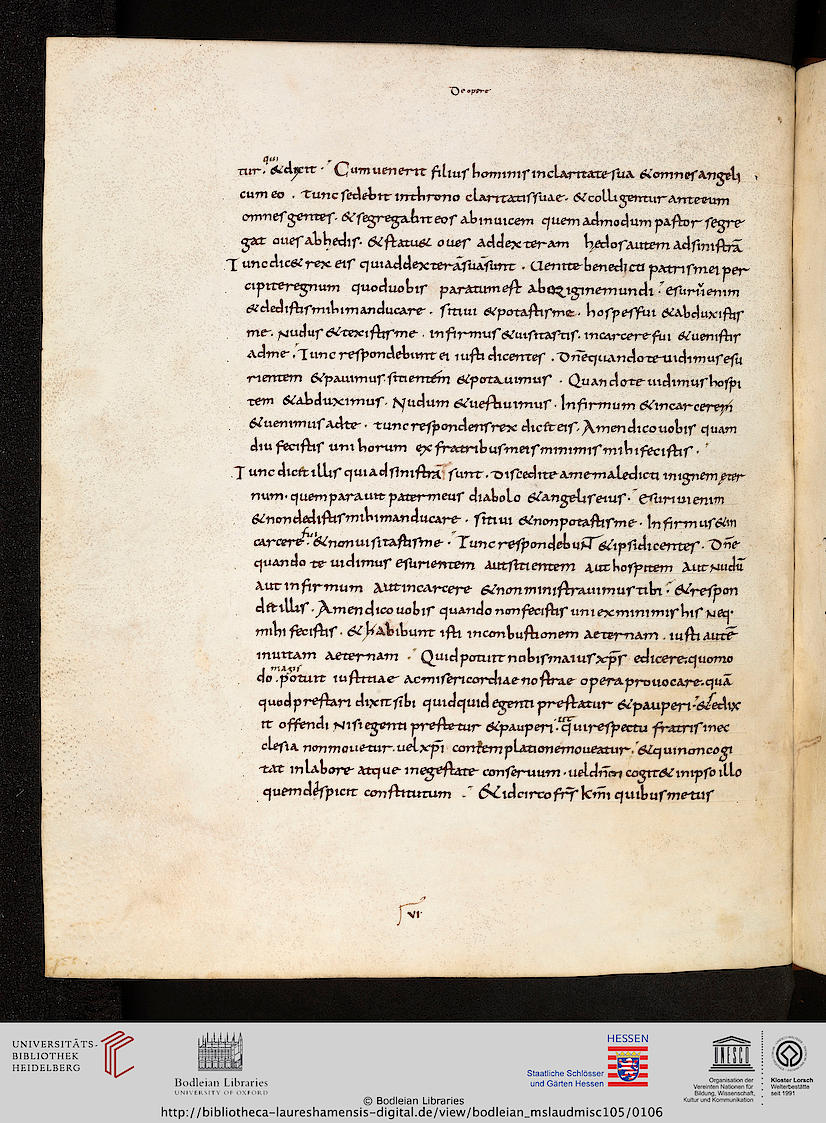 De opere
qui
tur. & dixit. Cum uenerit filius hominis in claritate sua & omnes angeli
cum eo. tunc sedebit in throno claritatis suae. & colligentur ante eum
omnes gentes. & segregabit eos ab inuicem quem admodum pastor segre
gat oues ab hedis. & statu& oues ad dexteram hedos autem ad sinistrā
Tunc dic& rex eis qui ad dexterā suā sunt. Uenite benedicti patris mei per
cipite regnum quod uobis paratum est ab origine mundi. esuriui enim
& dedistis mihi manducare. sitiui & potastis me. hospes fui & abduxistis
me. Nudus & texistis me. infirmus & uisitastis. in carcere fui & uenistis
ad me. Tunc respondebunt ei iusti dicentes. Dn̄e quando te uidimus esu
rientem & pauimus sitientem & potauimus. Quando te uidimus hospi
tem & abduximus. Nudum & uestiuimus. Infirmum & in carcerem
& uenimus ad te. tunc respondens rex dicit eis. Amen dico uobis quam
diu fecistis uni horum ex fratribus meis minimis mihi fecistis.
Tunc dicit illis qui ad sinistrā sunt. Discedite a me maledicti in ignem ęter
num. quem parauit pater meus diabolo & angelis eius. Esuriui enim
& non dedistis mihi manducare. sitiui & non potastis me. Infirmus & in
fui
carcere. & non uisitastis me. Tunc respondebunt & ipsi dicentes. Dn̄e
quando te uidimus esurientem aut sitientem aut hospitem aut nudū
aut infirmum aut in carcere & non ministrauimus tibi. & respon
dit illis. Amen dico uobis quando non fecistis uni ex minimis his neq.
mihi fecistis. & habibunt isti inconbustionem aeternam. iusti autē
in uitam aeternam. Quid potuit nobis maius xp̄s edicere. quomo
magis
do potuit iustitiae ac misericordiae nostrae opera prouocare. quā
quod prestari dixit sibi quidquid egenti prestatur & pauperi. & se dix
it offendi nisi egenti prestetur & pauperi. qui respectu fratris in ec
clesia non mouetur. uel xp̄i contemplatione moueatur. & qui non cogi
tat in labore atque in egestate conseruum. uel dn̄m cogit& in ipso illo
quem despicit constitutum. & idcirco frs̄ km̄i quibus metus
VI
UNIVERSITÄTS-
BIBLIOTHEK
HEIDELBERG
Bodleian Libraries
UNIVERSITY OF OXFORD
HESSEN
Staatliche Schlösser
und Gärten Hessen
UNESCO
Organisation der
Vereinten Nationen für
Bildung, Wissenschaft,
Kultur und Kommunikation
Kloster Lorsch
Welterbestätte
seit 1991
© Bodleian Libraries
http://bibliotheca-laureshamensis-digital.de/view/bodleian_mslaudmisc105/0106